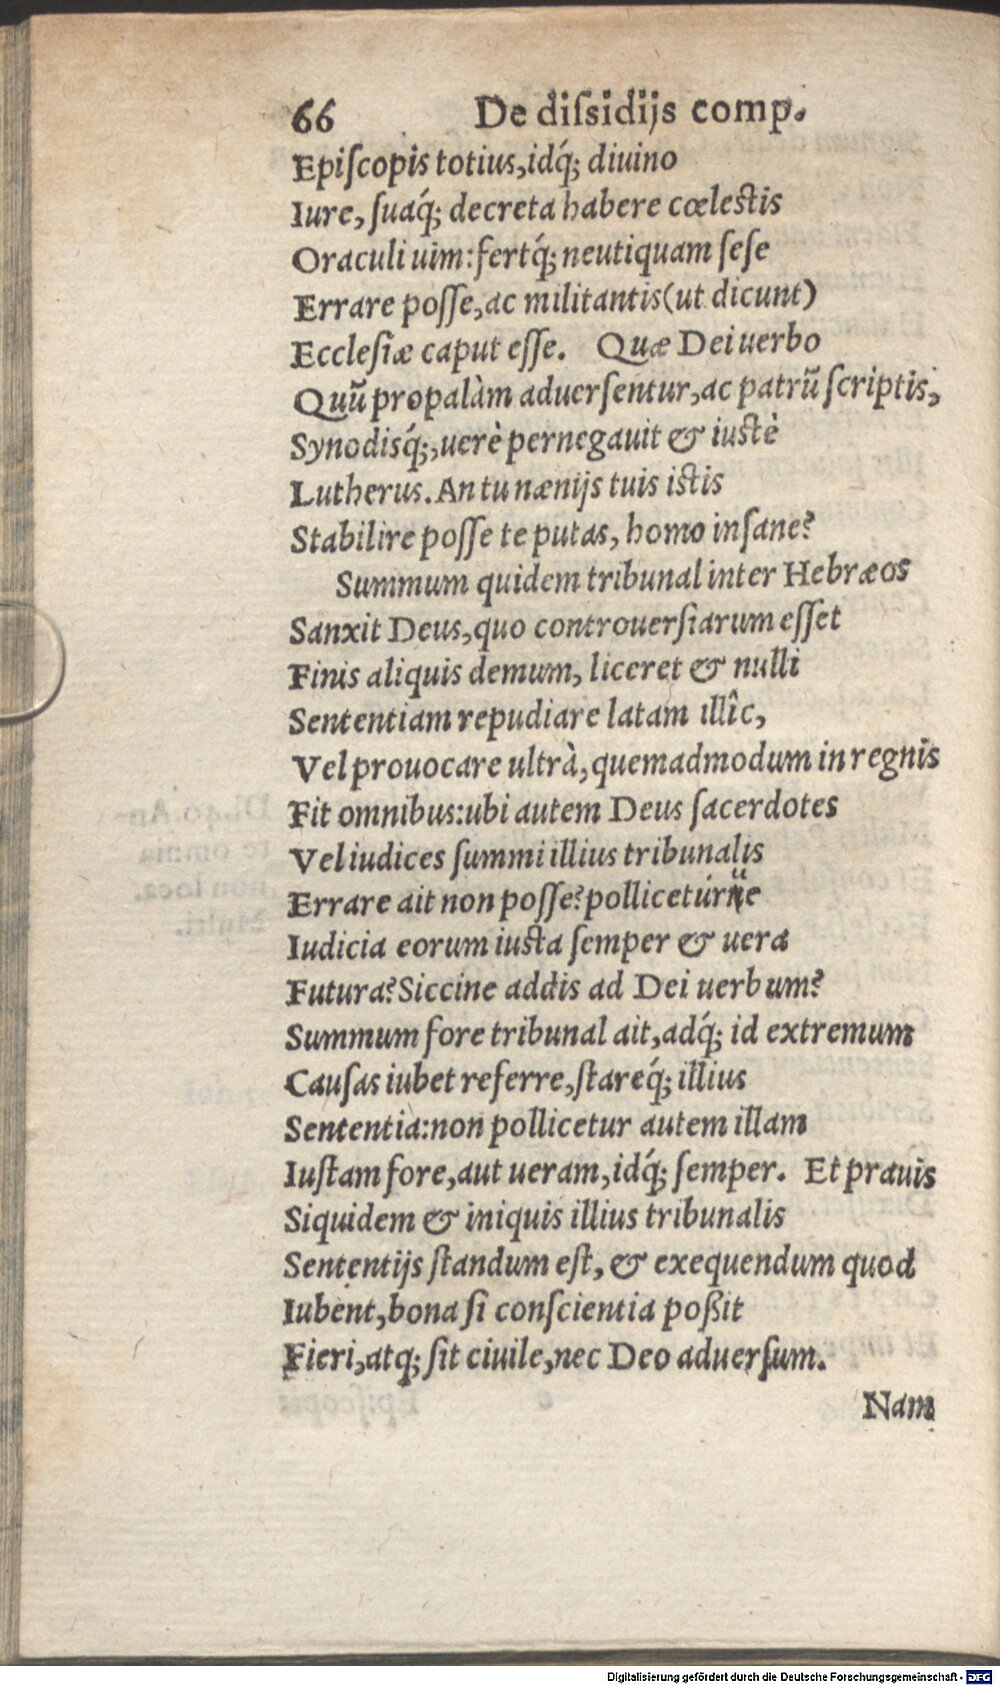 66 De diſsidijs comp.
Epiſcopis totius, idq́; diuino
Iure, ſuaq́; decreta habere cœlestis
Oraculi uim: fertq́; neutiquam ſeſe
Errare poſſe, ac militantis (ut dicunt)
Eccleſiæ caput eſſe. Quæ Dei uerbo
Quū propalàm aduerſentur, ac patrū ſcriptis,
Synodisq́;, uerè pernegauit & iustè
Lutherus. An tu nænijs tuis istis
Stabilire poſſe te putas, homo inſane?
Summum quidem tribunal inter Hebræos
Sanxit Deus, quo controuerſiarum eſſet
Finis aliquis demum, liceret & nulli
Sententiam repudiare latam illîc,
Vel prouocare ultrà, quemadmodum in regnis
Fit omnibus: ubi autem Deus ſacerdotes
Vel iudices ſummi illius tribunalis
Errare ait non poſſe? polliceturńe
Iudicia eorum iusta ſemper & uera
Futura? Siccine addis ad Dei uerbum?
Summum fore tribunal ait, adq́; id extremum
Cauſas iubet referre, ſtareq́; illius
Sententia: non pollicetur autem illam
Iuſtam fore, aut ueram, idq́; ſemper. Et prauis
Siquidem & iniquis illius tribunalis
Sententijs ſtandum eſt, & exequendum quod
Iubent, bona ſi conſcientia poßit
Fieri, atq; ſit ciuile, nec Deo aduerſum.
Nam
Digitalisierung gefördert durch die Deutsche Forschungsgemeinschaft - DFG